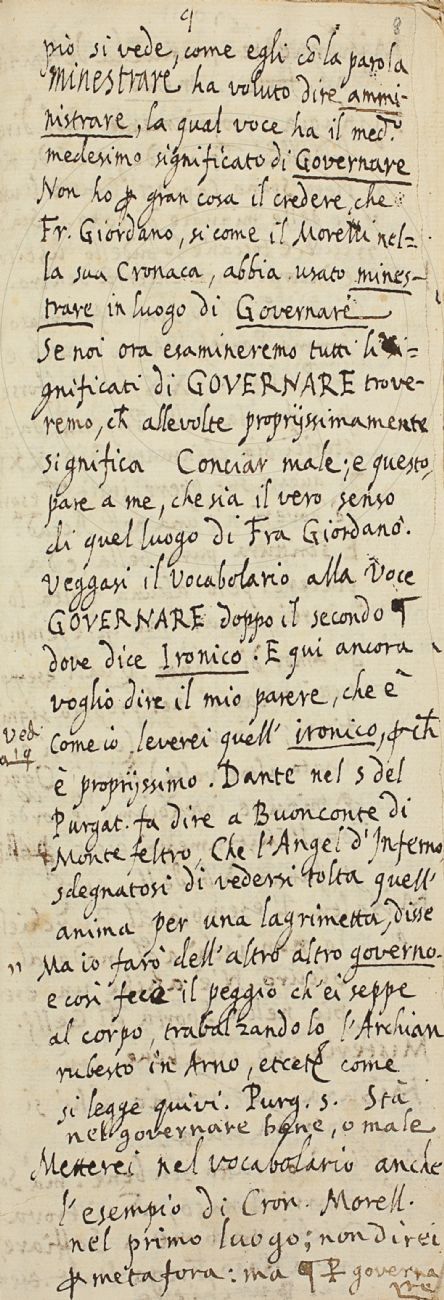 9 8
piò si vede, come egli cō la parola
minestrare ha voluto dire ammi-
nistrare, la qual voce ha il med.º
medesimo significato di Governare
Non ho ꝑ gran cosa il credere, che
Fr. Giordano, si come il Morelli nel=
la sua Cronaca, abbia usato mines-
trare in luogo di Governare
Se noi ora esamineremo tutti li si=
gnificati di GOVERNARE trove-
remo, ch̄ allevolte proprijssimamente
significa Conciar male; e questo,
pare a me, che sia il vero senso
di quel luogo di Fra Giordano.
Veggasi il Vocabolario alla Voce
GOVERNARE doppo il secondo ¶
dove dice Ironico. E qui ancora
voglio dire il mio parere, che è
Ved.
come io leverei quell' ironico, ꝑch̄
è proprijssimo. Dante nel 5 del
Purgat. fa dire a Buonconte di
Monte feltro, Che l'Angel d'Inferno,
sdegnatosi di vedersi tolta quell'
anima per una lagrimetta, disse
" Ma io farò dell'altro altro governo.
e così fece il peggio ch'ei seppe
al corpo, trabalzandolo l'Archian
rubesto in Arno, etcet. come
si legge quivi. Purg. 5. Sta
nel governare bene, o male
Metterei nel vocabolario anche
l'esempio di Cron. Morell.
nel primo luogo; non direi
ꝑ metafora: ma ¶ ꝑ governa
re